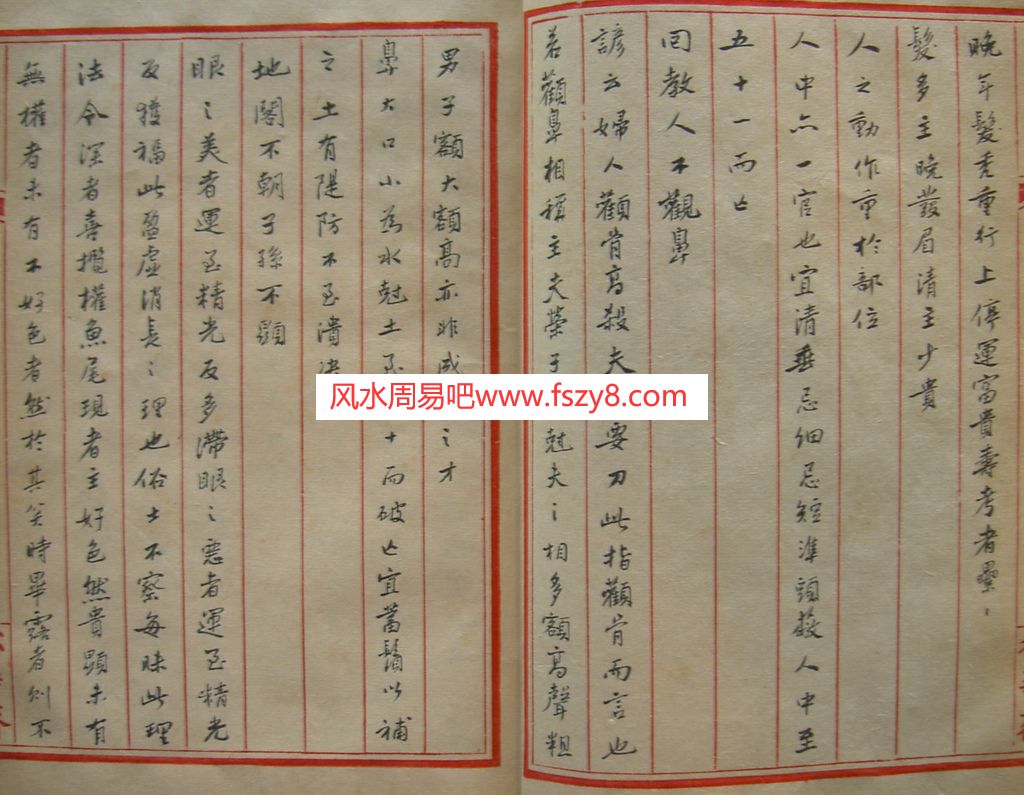 晚年髮禿重行上停運富貴壽考者壘〻
髮多主晚發眉清主少貴
人之動作重於部位
人中亦一官也宜清垂忌細忌短準頭蔽人中至
五十一而亡
回教人不觀鼻
諺云婦人顴骨高殺夫 要刀此指顴骨而言也
若顴鼻相稱主夫榮子 尅夫〻相多額高聲粗
男子額大額高亦非 〻才
鼻大口小為水尅土至 十而破亡宜蓄鬚以補
之土有隄防不至潰
地閣不朝子孫不顯
眼〻美者運至精光反多滯眼〻惡者運至精光
反獲福此盈虛消長〻理也俗士不察每昧此理
法令深者喜攬權魚尾現者主好色然貴顯未有
無權者未有不好色者然於其笑時畢露者則不
风水周易吧www.fszy8.com